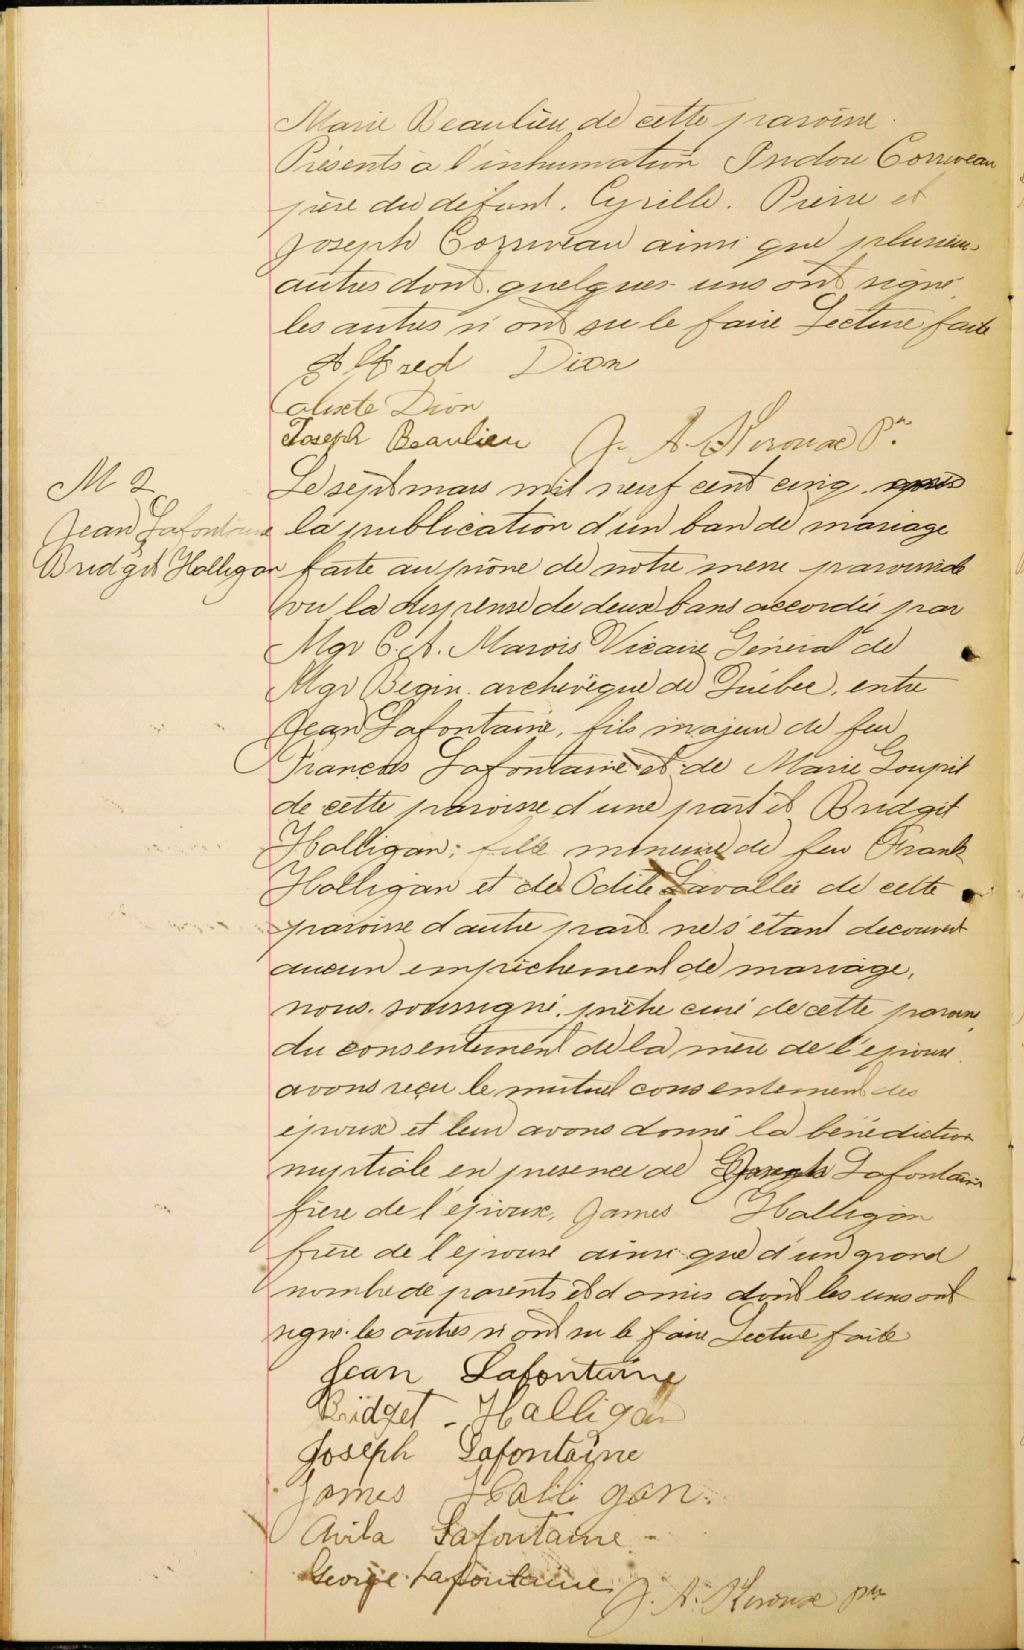 Marie Beaulieu de cette paroisse.
Présents à l'inhumation Isidore Corriveau
père du défunt. Cyrille. Pierre et
Joseph Corriveau ainsi que plusieurs
autres dont quelques uns ont signé
les autres n'ont su le faire Lecture faite
Alfred Dion
Calixte Dion
Joseph Beaulieu J. A. Kirouac Ptre
M 2
Jean Lafontaine
&
Bridgit Halligan
Le sept mars mil neuf cent cinq. après
la publication d'un ban de mariage
faite au prône de notre messe paroissiale
vu la dispense de deux bans accordée par
Mgr C. A. Marois Vicaire Général de
Mgr Begin. archevêque de Québec. entre
Jean Lafontaine, fils majeur de feu
François Lafontaine et de Marie Goupil
de cette paroisse d'une part et Bridgit
Halligan; fille mineure de feu Frank
Halligan et de Odile Lavallée de cette
paroisse d'autre part. ne s'étant decouvert
aucun empêchement de mariage,
nous. soussigné. prêtre curé de cette paroisse,
du consentement de la mère de l'épouse.
avons reçu le mutuel consentement des
époux et leur avons donné la bénédiction
nuptiale en presence de Joseph Lafontaine
frère de l'époux, James Halligan
frère de l'épouse ainsi que d'un grand
nombre de parents et d'amis dont les uns ont
signé. les autres n'ont su le faire Lecture faite
Jean Lafontaine
Bridget - Halligan
Joseph Lafontaine
James Halligan.
Avila Lafontaine -
George Lafontaine J. A. Kirouac ptre